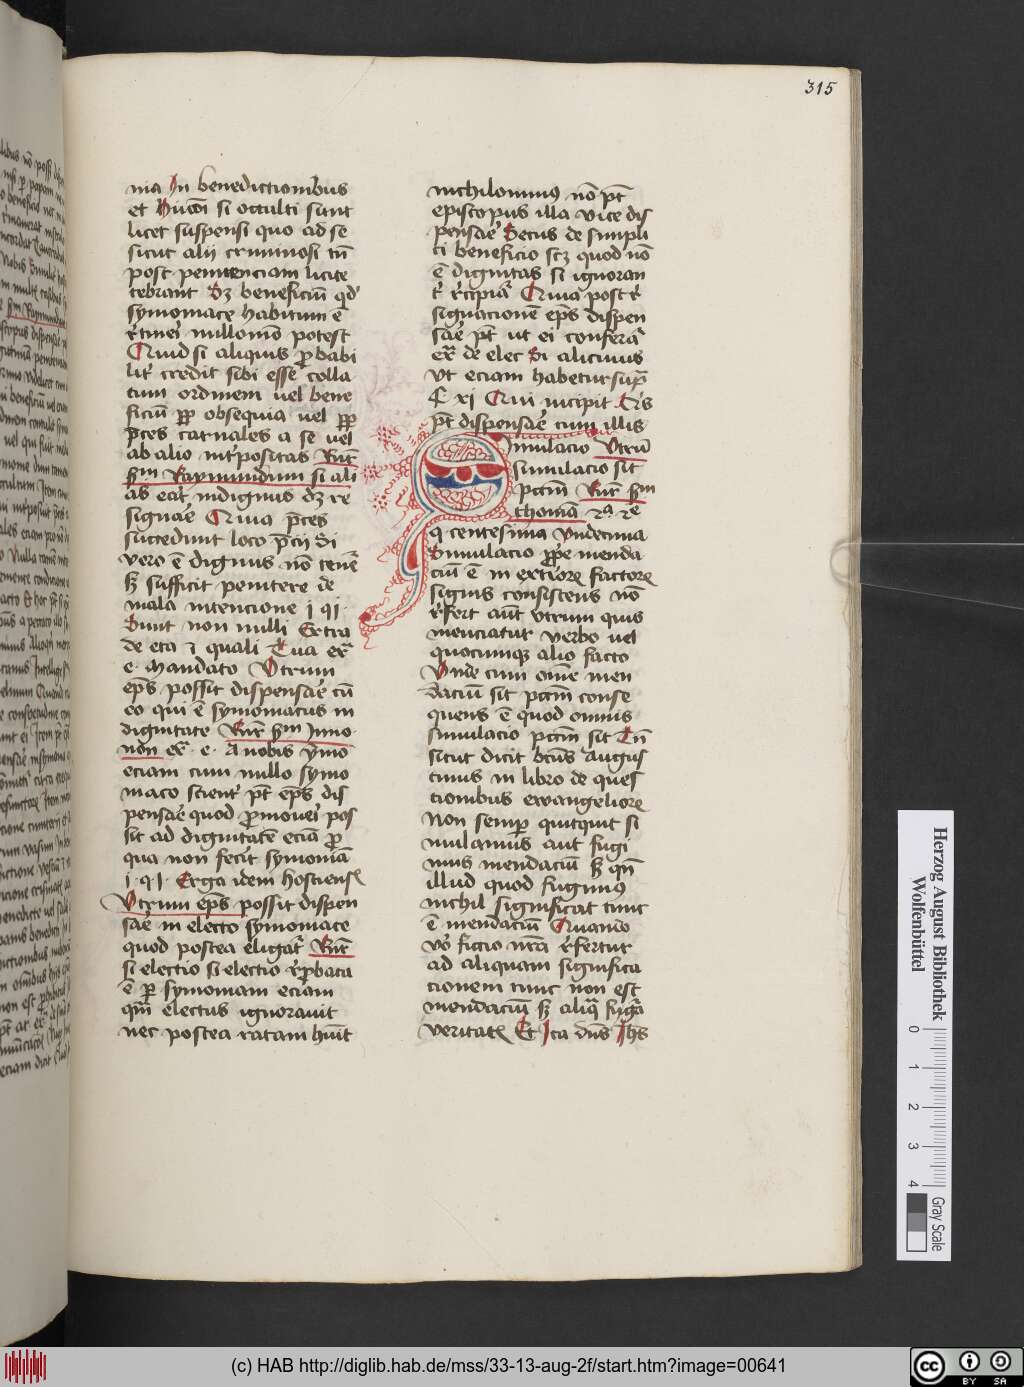 315
nia In benedictionibus
et Huiusmodi si occulti sunt
licet suspensi quo ad se
sicut alii criminosi tn̄
post penitenciam licite
celebrant Sz beneficiū qd'
symoniace habitum ē
r̄tineri nullomō potest
Quid si aliquis probabi
lit' credit sibi esse colla
tum ordinem uel bene
ficiū ꝓp obsequia uel ꝓp
p̄ces carnales a se uel
ab alio int'positas Rn̄r
s̄m Raymundum si ali
as erat indignus dz re
signare Quia p̄ces
succedunt loco p̄cij Si
vero ē dignus nō tenet'
sz sufficit penitere de
mala intencione j q j
Sunt non nulli Extra
de eta et quali Tua ex̄
e mandato Vtrum
ep̄s possit dispensare cū
eo qui ē symoniacus in
dignitate Rn̄r s̄m Inno
non ex̄ e A nobis ymo
eciam cum nullo symo
niaco scient' pt̄ ep̄s dis
pensare quod promoueri pos
sit ad dignitatē eciā pro
qua non fecit symoniā
j q j Erga idem hostiens
Vtrum ep̄s possit dispen
sare in electo symoniace
quod postea eligat' Rn̄r
si electio si electio r̄probata
ē per symoniam eciam
qm̄ electus ignorauit
nec postea ratam hūit
nichilominus nō pt̄
episcopus illa vice dis
pensare Secus de simpli
ci beneficio scz quod nō
ē dignitas si ignoran
t' r̄cipiat' Quia post r̄
signacionē ep̄s dispen
sare pt̄ ut ei conferat'
ex̄ de elec Si alicuius
vt eciam habetur sup̄
C xj Qui incipit Ep̄s
pt̄ dispensare cum illis
Simulacio Vtrū
simulacio sit
pctm̄ Rn̄r s̄m
thomā 2ª 2e
q centesima vndecima
Simulacio propr̄e menda
ciū ē in exteriorꝝ factorꝝ
signis consistens nō
r̄fert aut̄ vtrum quis
menciatur verbo uel
quocumqꝫ alio facto
Vnde cum om̄e men
dacium sit pctm̄ conse
quens ē quod omnis
simulacio pctm̄ sit Tn̄
sicut dicit btūs Augus
tinus in libro de ques
tionibus ewangeliorꝝ
Non semp̄ quitquit si
mulamus aut fugi
mus mendaciū sz qn̄
illud quod fugimus
nichil significat tunc
ē mendaciū Quando
vō fictio nr̄a r̄fertur
ad aliquam significa
cionem tunc non est
mendaciū sz aliqua fyg'a
veritatꝭ Et Ita dn̄s Ihs
Herzog August Bibliothek
Wolfenbüttel
0 1 2 3 4
Gray Scale
(c) HAB http://diglib.hab.de/mss/33-13-aug-2f/start.htm?image=00641
cc BY SA